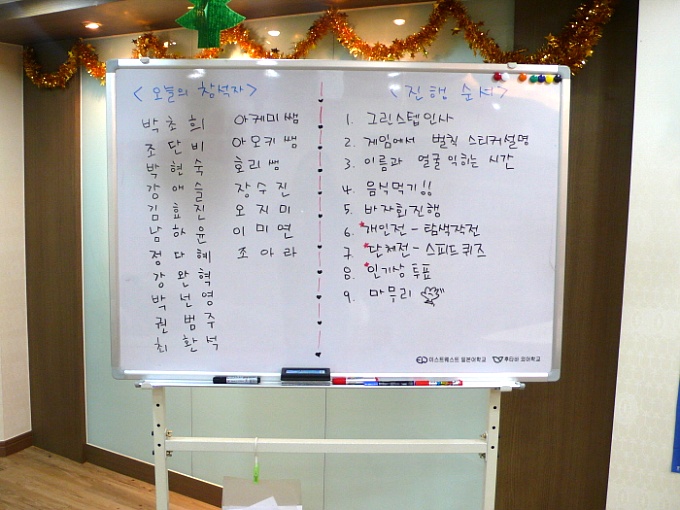 <오늘의 참석자>
박초희
조단비
박현숙
강애슬
김효진
남하윤
정다혜
강완혁
박선영
권범주
최환석
아케미쌤
아오키쌤
호리쌤
장수진
오지미
이미연
조아라
<진행순서>
1. 그린스텝인사
2. 게임에서 벌칙 스티커설명
3. 이름과 얼굴 익히는 시간
4. 음식먹기!!
5. 바자회진행
6. *개인전-탐색작전
7. *단체전-스피드퀴즈
8. *인기상투표
9. 마무리
이스트웨스트 일본어학교
후타바 외어학교